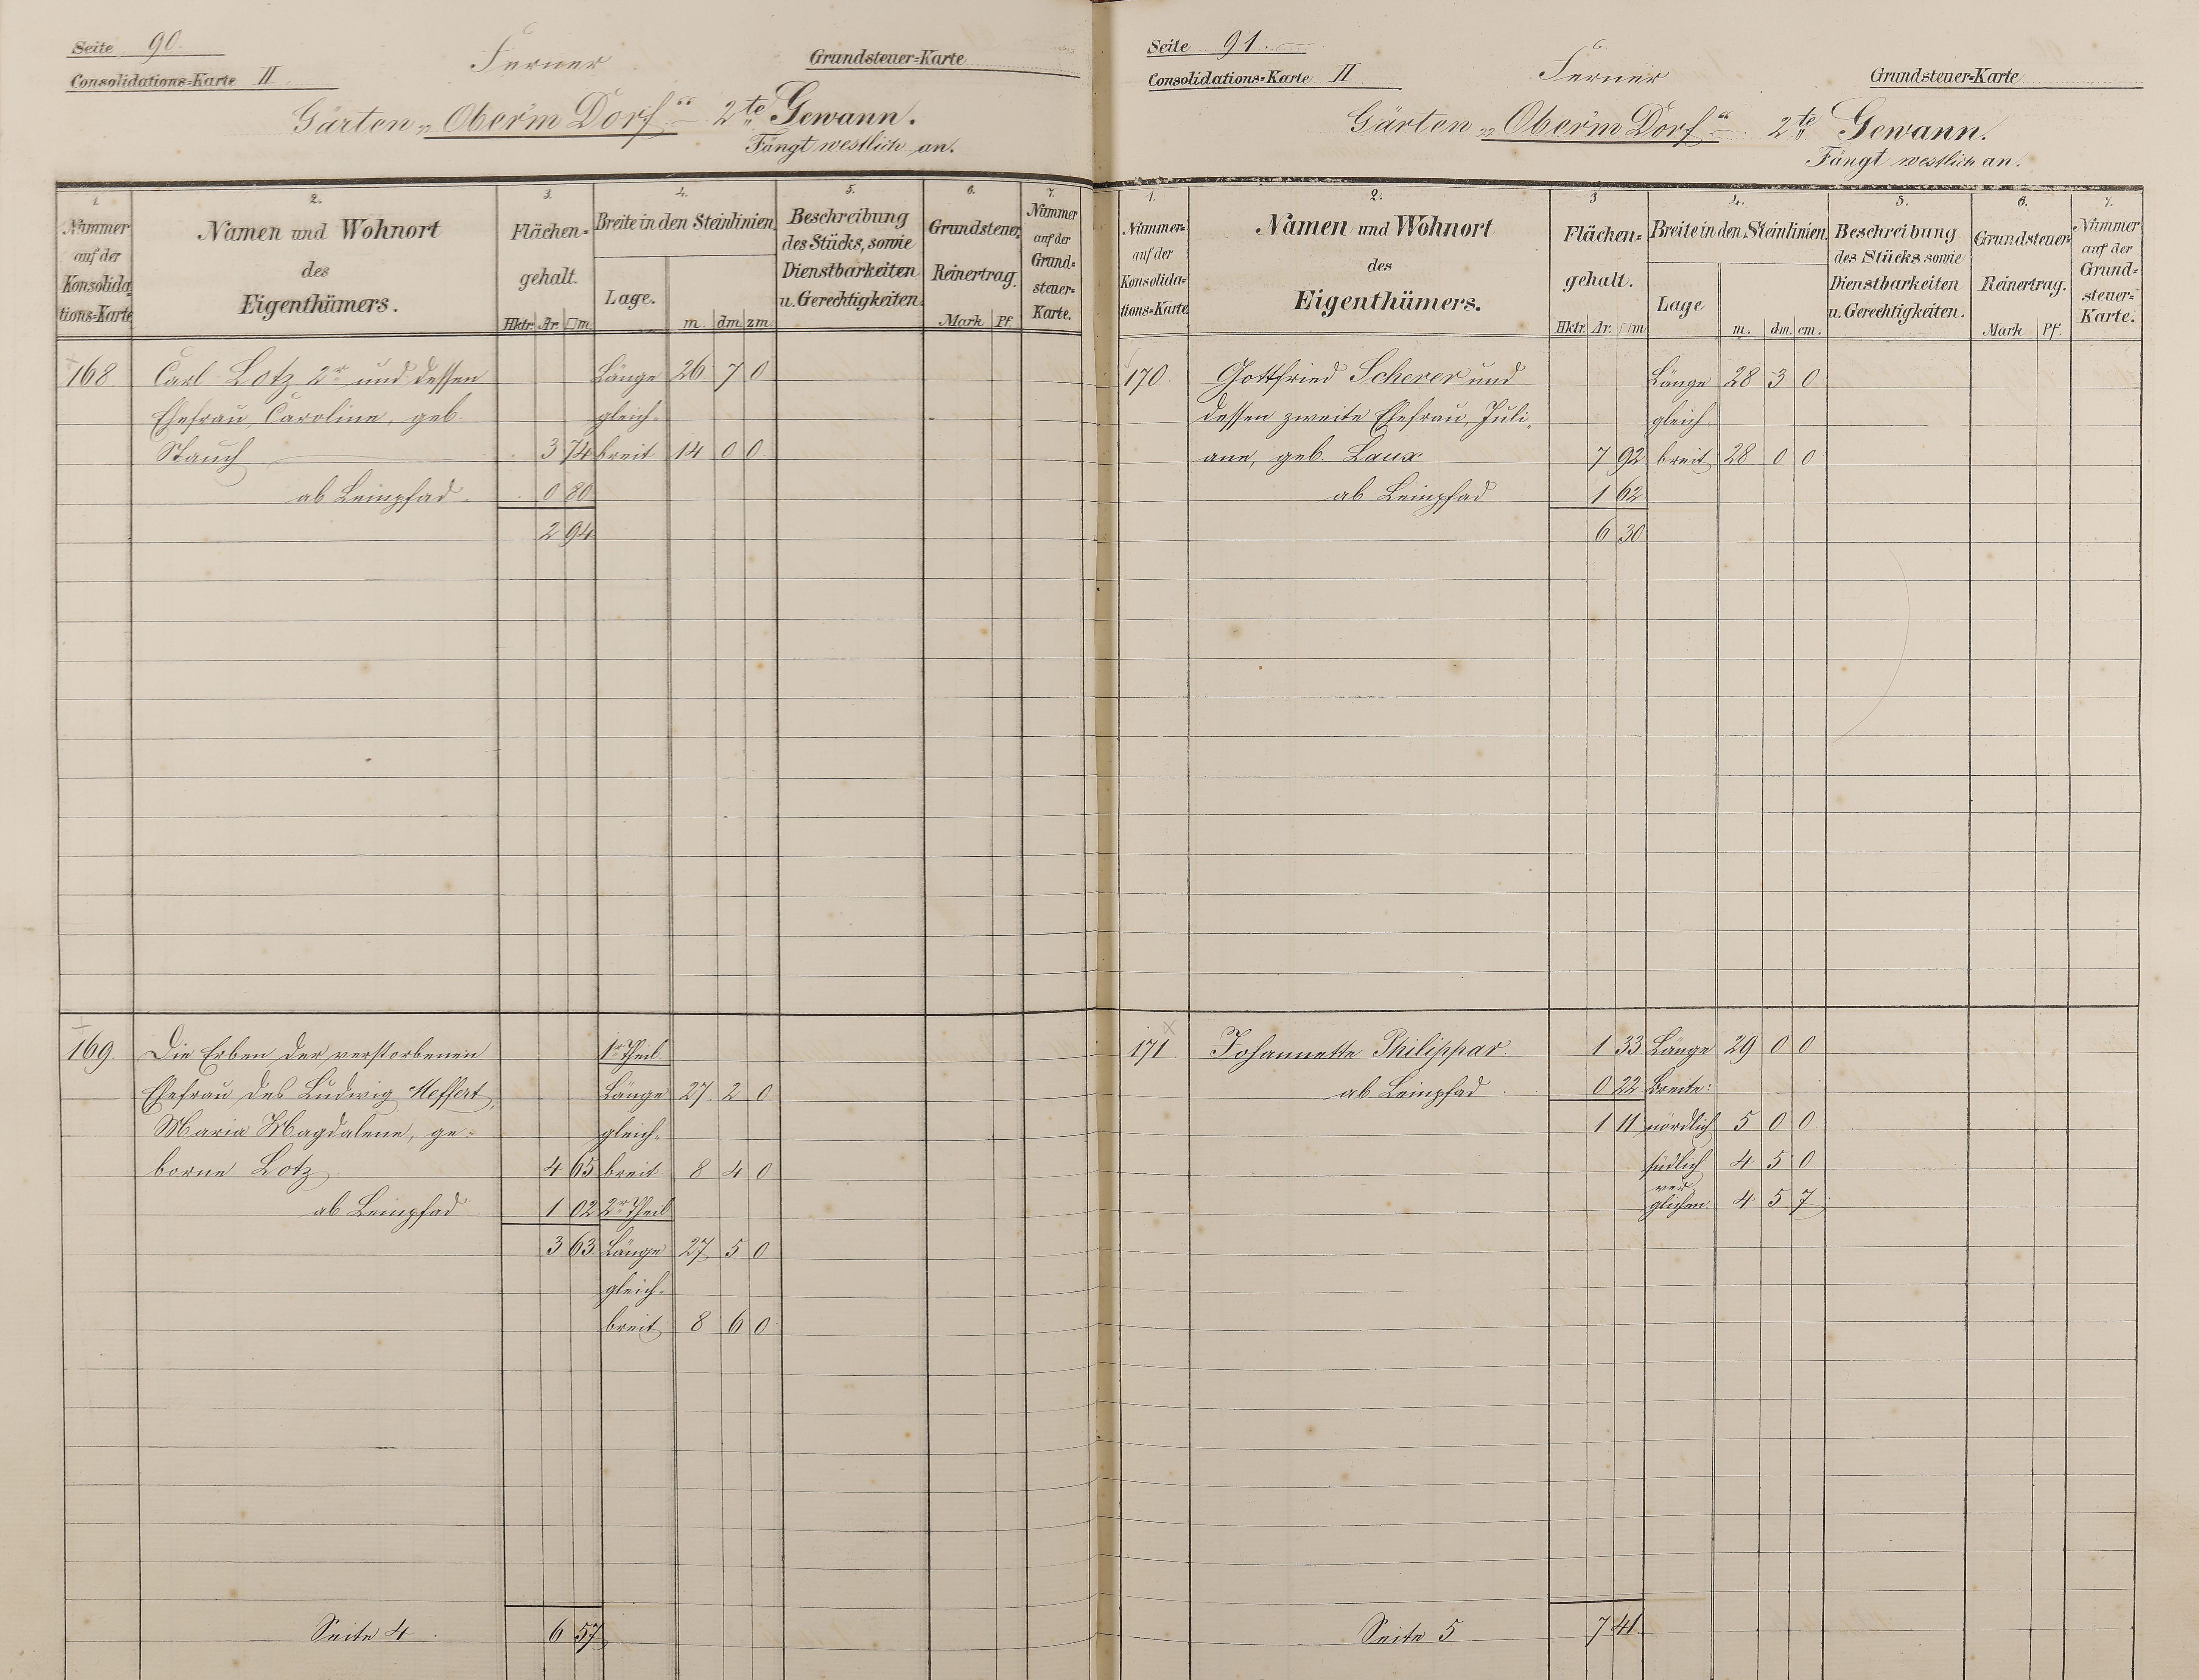 Seite 90.
Consolidations=Karte II
Ferner
Grundsteuer=Karte
Gärten „Ober'm Dorf" — 2te Gewann.
Fängt westlich an.
1. 2. 3. 4. 5. 6. 7.
Nummer auf der Konsolida tions=Karte
Namen und Wohnort des Eigenthümers.
Flächen= gehalt.
Hktr. Ar. □m
Breite in den Steinlinien
Lage. m. dm. zm.
Beschreibung des Stücks, sowie Dienstbarkeiten u. Gerechtigkeiten.
Grundsteuer Reinertrag.
Mark Pf.
Nummer auf der Grund= steuer= Karte.
168. Carl Lotz 2r und dessen Länge 26 7 0
Ehefrau, Caroline, geb. gleich=
Stauch 3 74 breit 14 0 0
ab Leinpfad 0 80
2 94
169. Die Erben der verstorbenen 1r Theil
Ehefrau des Ludwig Meffert, Länge 27 2 0
Maria Magdalene, ge= gleich=
borne Lotz 4 65 breit 8 4 0
ab Leinpfad 1 02 2r Theil
3 63 Länge 27 5 0
gleich=
breit 8 6 0
Seite 4. 6 57
Seite 91.
Consolidations=Karte II
Ferner
Grundsteuer=Karte
Gärten „Ober'm Dorf" —. 2te Gewann.
Fängt westlich an.
1. 2. 3 4. 5. 6. 7.
Nummer auf der Konsolida= tions=Karte
Namen und Wohnort des Eigenthümers.
Flächen= gehalt.
Hktr. Ar. □m
Breite in den Steinlinien.
Lage m. dm. cm.
Beschreibung des Stücks sowie Dienstbarkeiten u. Gerechtigkeiten.
Grundsteuer Reinertrag.
Mark Pf.
Nummer auf der Grund= steuer= Karte.
170. Gottfried Scherer und Länge 28 3 0
dessen zweite Ehefrau, Juli= gleich=
ane, geb. Laux 7 92 breit 28 0 0
ab Leinpfad 1 62
6 30
171. Johannette Philippar. 1 33 Länge 29 0 0
ab Leinpfad 0 22 Breite:
1 11 nördlich 5 0 0
südlich 4 5 0
ver
glichen 4 5 7
Seite 5 7 41.